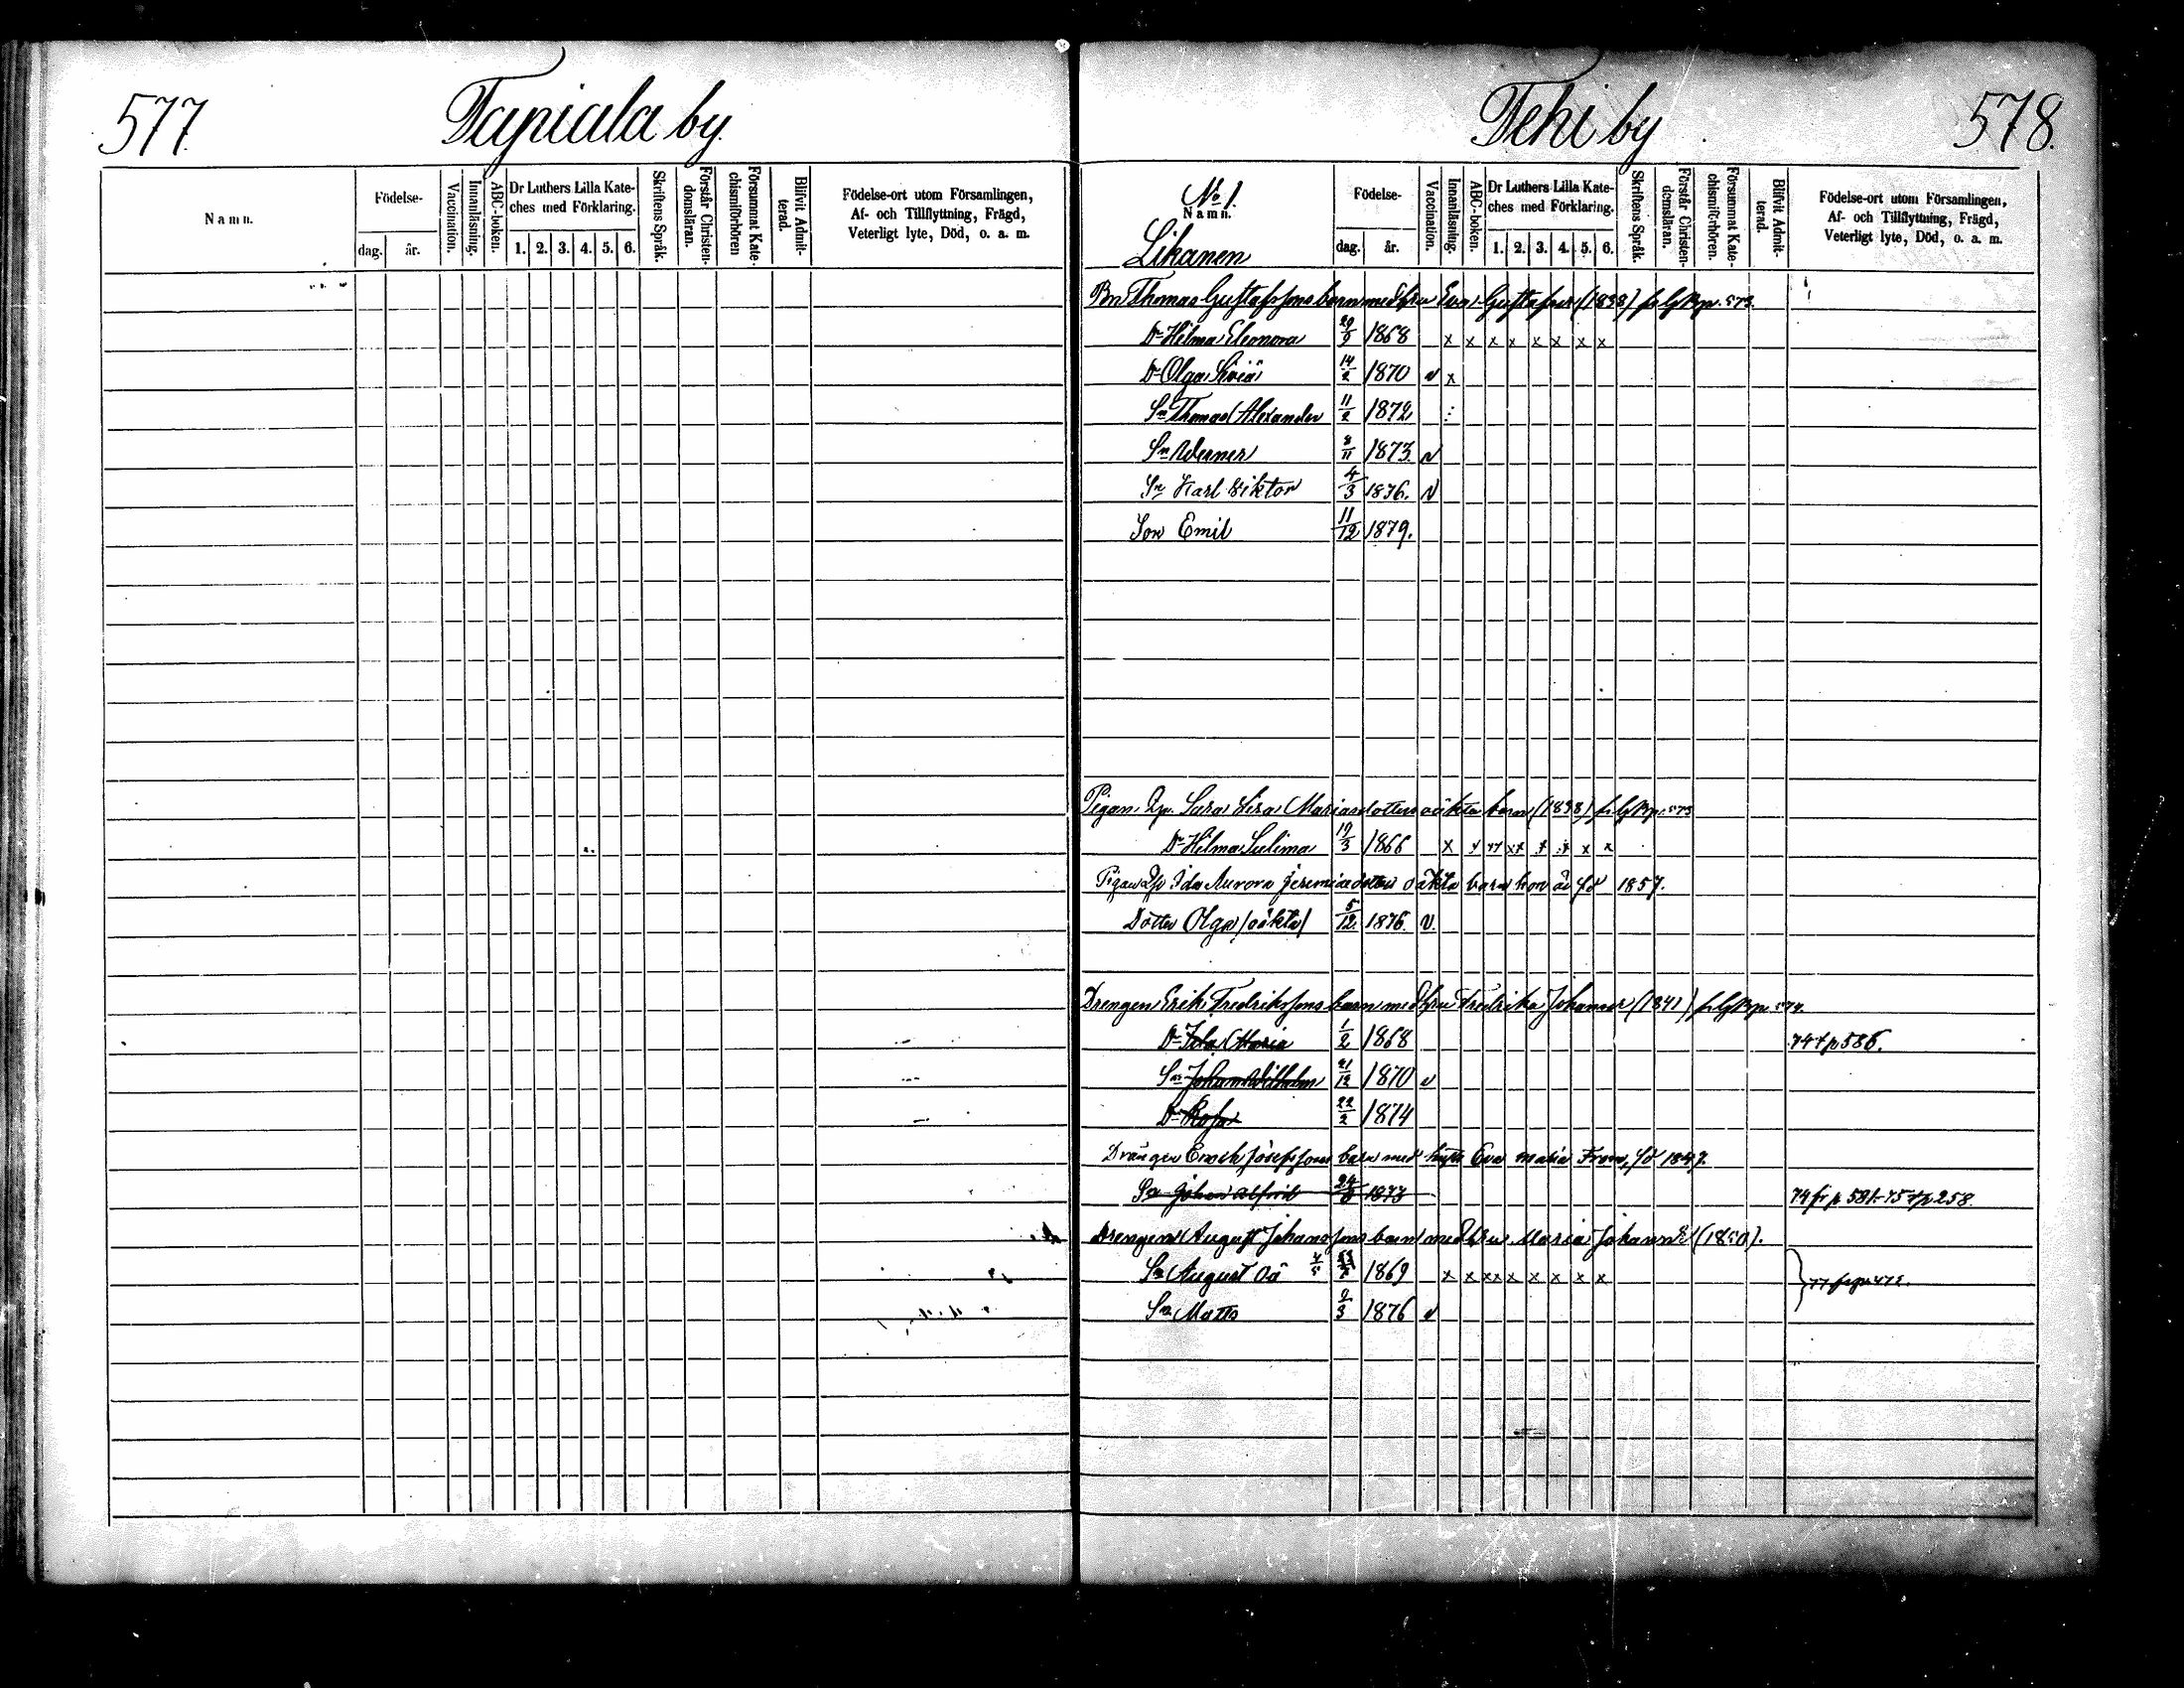 577
Tapiala by.
Namn.
Födelse-
dag.
år.
Vaccination.
Innanläsning.
ABC-boken.
Dr Luthers Lilla Kate-
ches med Förklaring.
1. 2. 3. 4. 5. 6.
Skriftens Språk.
Förstår Christen-
domsläran.
Försummat Kate-
chismiförhören
Blifvit Admit-
terad.
Födelse-ort utom Församlingen,
Af- och Tillflyttning, Frägd,
Veterligt lyte, Död, o. a. m.
Tehi by
578.
No 1.
Namn.
Likanen
Födelse-
dag.
år.
Vaccination.
Innanläsning.
ABC-boken.
Dr Luthers Lilla Kate-
ches med Förklaring.
1. 2. 3. 4. 5. 6.
Skriftens Språk.
Förstår Christen-
domsläran.
Försummat Kate-
chismiförhören.
Blifvit Admit-
terad.
Födelse-ort utom Församlingen,
Af- och Tillflyttning, Frägd,
Veterligt lyte, Död, o. a. m.
Bn Thomas Gustafssons barn med hu Eva Gustafsdr (1838) 573.
Dr Hilma Eleonora 29/9 1868 x x x x x x x x
Dr Olga 14/2 1870 v x
Sn Thomas Alexander 11/2 1872
Sn Werner 8/11 1873. v
Sn Karl Viktor 4/3 1876. v
Son Emil 11/12 1879.
Pigan Sara Lisa Mariasdotters oäkta barn (1838) 573
Dr Hilma Sulima 19/3 1866 x x xx xx x x x x
Pigan Ida Aurora Jeremiaedotters oäkta barn hon är fd 1857.
Dotter Olga (oäkta) 5/12. 1876. v.
Drengen Erik Fredrikssons barn med hu Fredrika Johansdr (1841) 574.
Dr Ida Maria 1/2 1868 74 t p 586.
Sn Johan Wilhelm 21/12 1870 v
Dr Rosa 22/2 1874
Drängen Josefssons barn med hust Eva Maria From, fd 1847.
Sn Johan 1873 74 fr p 581-75 t p 258.
Drengen August Johanssons barn med hu Maria Johansdr (1850).
Sn August Oä 1869 x x xx x x x x x
Sn Matts 9/3 1876 v